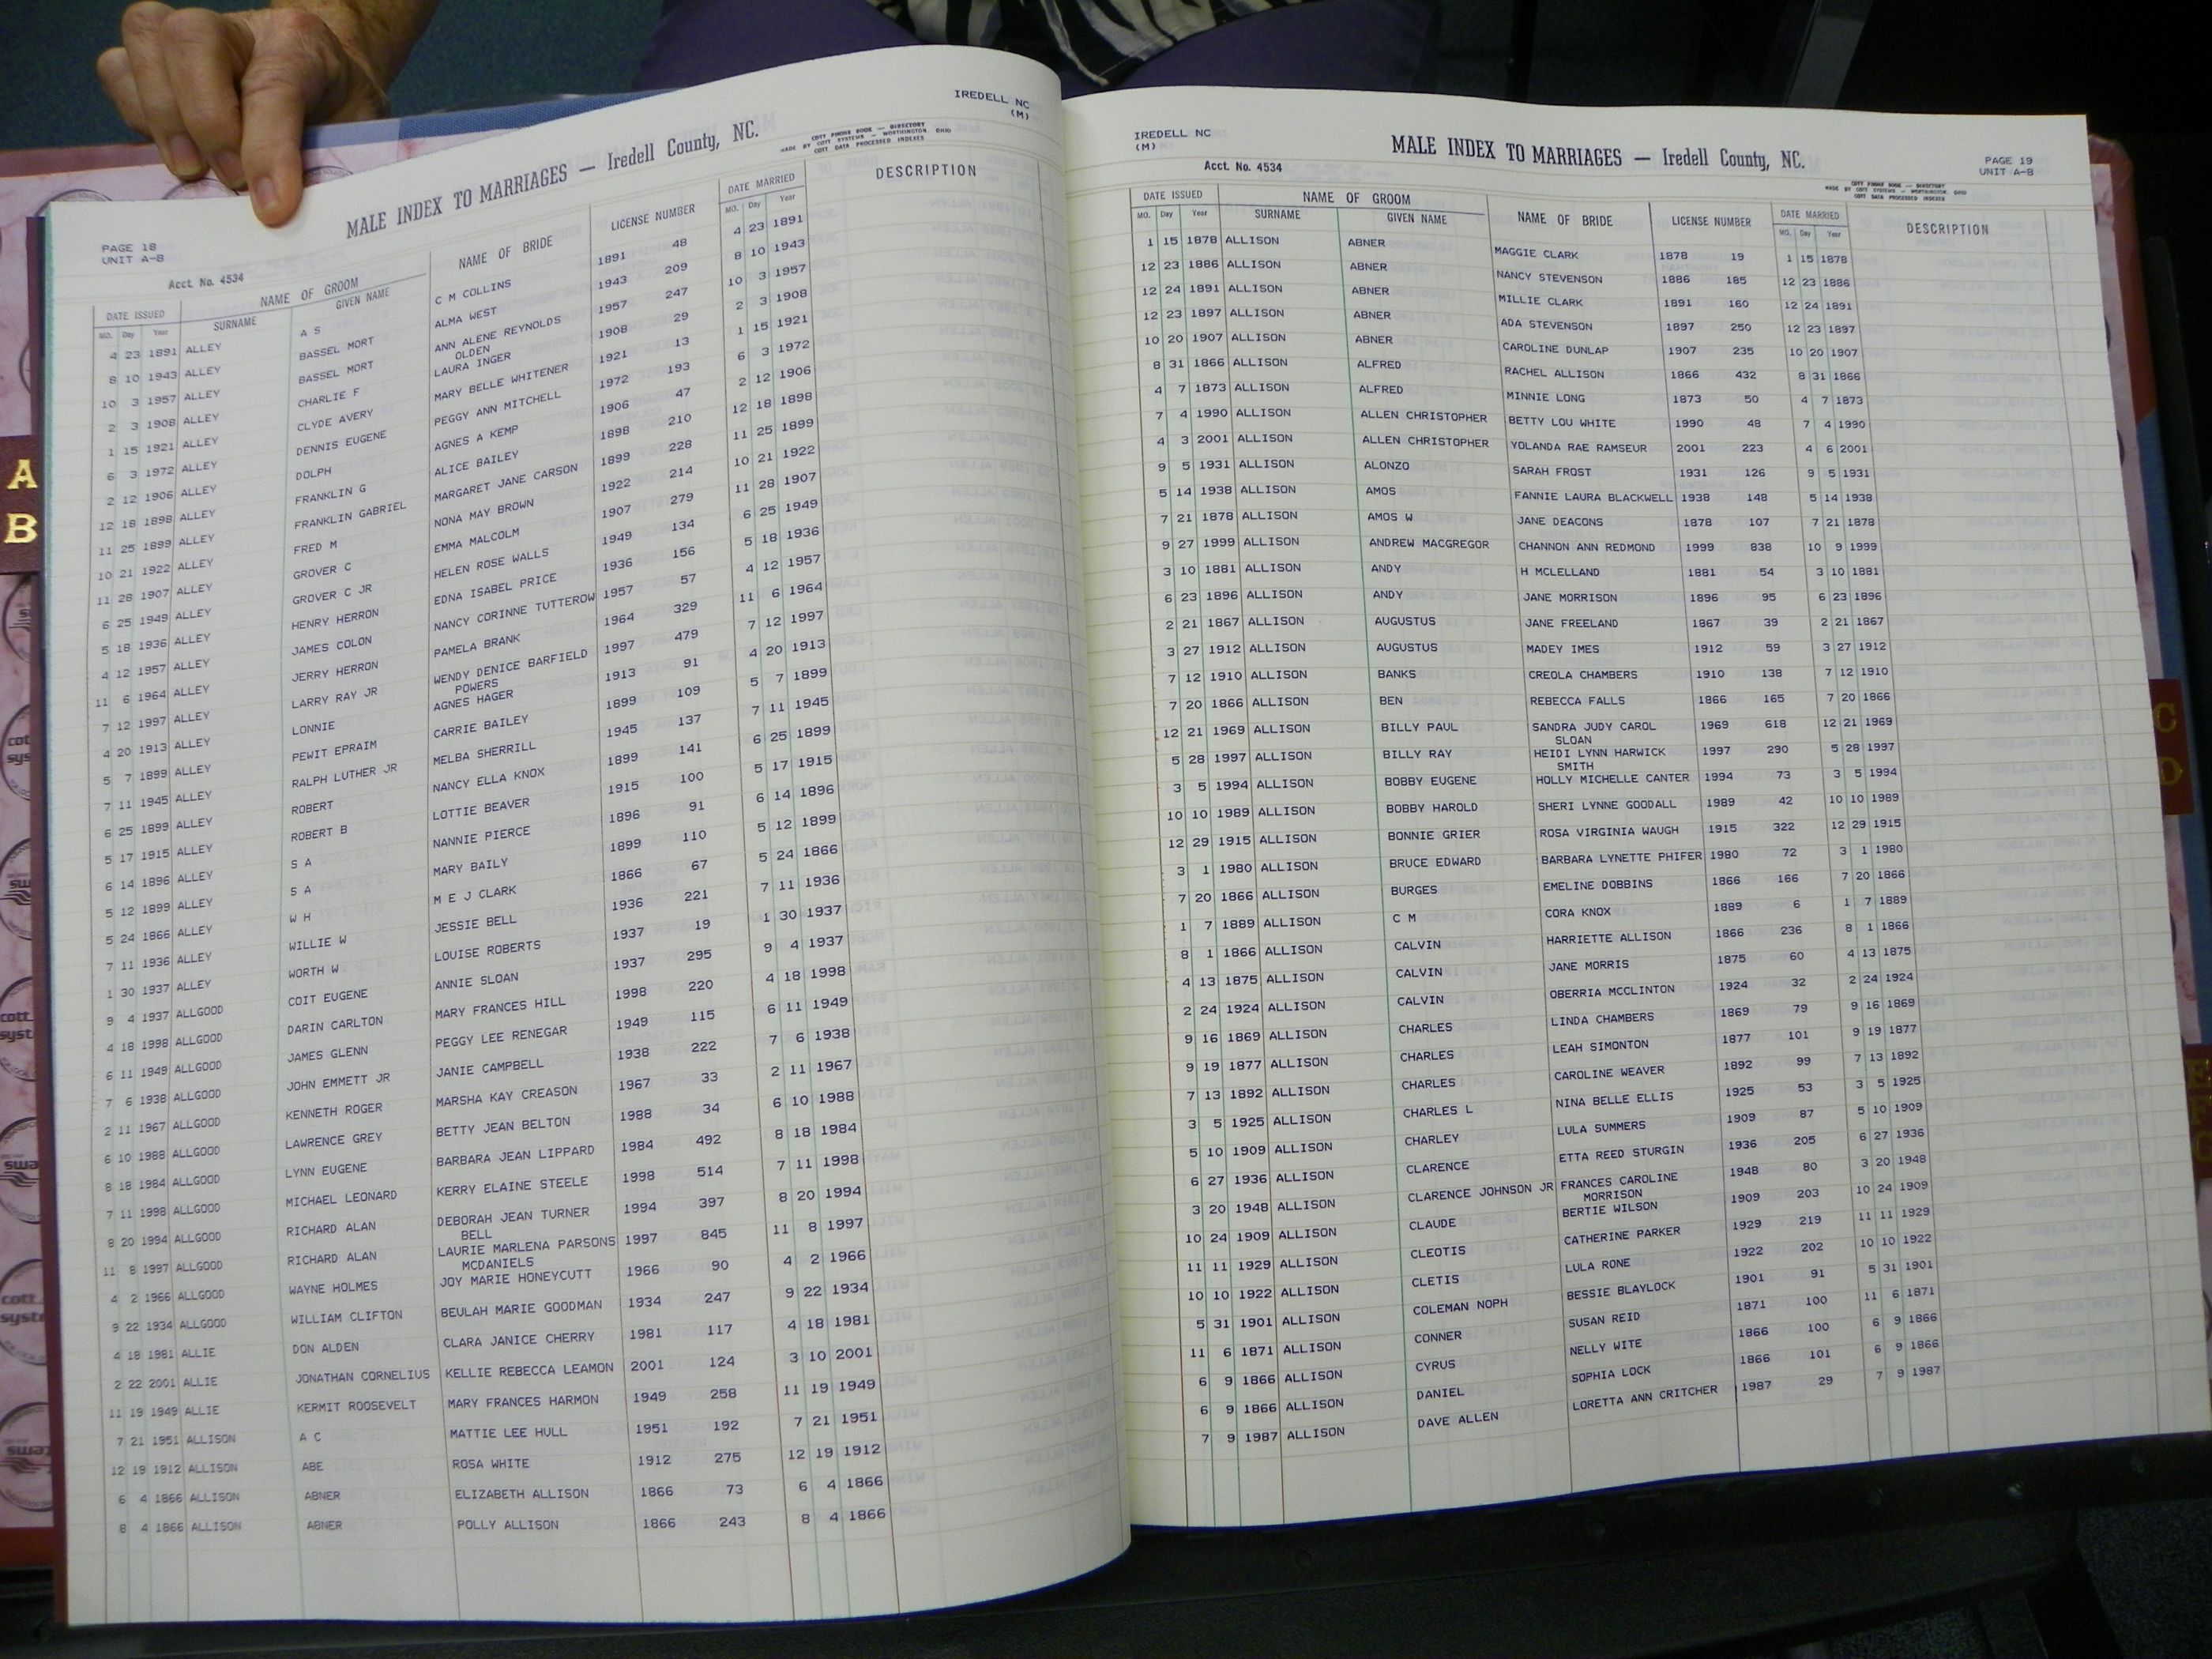 IREDELL NC
(M)
MALE INDEX TO MARRIAGES — Iredell County, NC.
COTT FINDER BOOK — DIRECTORY
MADE BY COTT SYSTEMS — WORTHINGTON, OHIO
COTT DATA PROCESSED INDEXES
PAGE 18
UNIT A-B
Acct. No. 4534
DATE ISSUED NAME OF GROOM NAME OF BRIDE LICENSE NUMBER DATE MARRIED DESCRIPTION
MO. Day Year SURNAME GIVEN NAME MO. Day Year
4 23 1891 ALLEY A S C M COLLINS 1891 48 4 23 1891
8 10 1943 ALLEY BASSEL MORT ALMA WEST 1943 209 8 10 1943
10 3 1957 ALLEY BASSEL MORT ANN ALENE REYNOLDS 1957 247 10 3 1957
OLDEN
2 3 1908 ALLEY CHARLIE F LAURA INGER 1908 29 2 3 1908
1 15 1921 ALLEY CLYDE AVERY MARY BELLE WHITENER 1921 13 1 15 1921
6 3 1972 ALLEY DENNIS EUGENE PEGGY ANN MITCHELL 1972 193 6 3 1972
2 12 1906 ALLEY DOLPH AGNES A KEMP 1906 47 2 12 1906
12 18 1898 ALLEY FRANKLIN G ALICE BAILEY 1898 210 12 18 1898
11 25 1899 ALLEY FRANKLIN GABRIEL MARGARET JANE CARSON 1899 228 11 25 1899
10 21 1922 ALLEY FRED M NONA MAY BROWN 1922 214 10 21 1922
11 28 1907 ALLEY GROVER C EMMA MALCOLM 1907 279 11 28 1907
6 25 1949 ALLEY GROVER C JR HELEN ROSE WALLS 1949 134 6 25 1949
5 18 1936 ALLEY HENRY HERRON EDNA ISABEL PRICE 1936 156 5 18 1936
4 12 1957 ALLEY JAMES COLON NANCY CORINNE TUTTEROW 1957 57 4 12 1957
11 6 1964 ALLEY JERRY HERRON PAMELA BRANK 1964 329 11 6 1964
7 12 1997 ALLEY LARRY RAY JR WENDY DENICE BARFIELD 1997 479 7 12 1997
POWERS
4 20 1913 ALLEY LONNIE AGNES HAGER 1913 91 4 20 1913
5 7 1899 ALLEY PEWIT EPRAIM CARRIE BAILEY 1899 109 5 7 1899
7 11 1945 ALLEY RALPH LUTHER JR MELBA SHERRILL 1945 137 7 11 1945
6 25 1899 ALLEY ROBERT NANCY ELLA KNOX 1899 141 6 25 1899
5 17 1915 ALLEY ROBERT B LOTTIE BEAVER 1915 100 5 17 1915
6 14 1896 ALLEY S A NANNIE PIERCE 1896 91 6 14 1896
5 12 1899 ALLEY S A MARY BAILY 1899 110 5 12 1899
5 24 1866 ALLEY W H M E J CLARK 1866 67 5 24 1866
7 11 1936 ALLEY WILLIE W JESSIE BELL 1936 221 7 11 1936
1 30 1937 ALLEY WORTH W LOUISE ROBERTS 1937 19 1 30 1937
9 4 1937 ALLGOOD COIT EUGENE ANNIE SLOAN 1937 295 9 4 1937
4 18 1998 ALLGOOD DARIN CARLTON MARY FRANCES HILL 1998 220 4 18 1998
6 11 1949 ALLGOOD JAMES GLENN PEGGY LEE RENEGAR 1949 115 6 11 1949
7 6 1938 ALLGOOD JOHN EMMETT JR JANIE CAMPBELL 1938 222 7 6 1938
2 11 1967 ALLGOOD KENNETH ROGER MARSHA KAY CREASON 1967 33 2 11 1967
6 10 1988 ALLGOOD LAWRENCE GREY BETTY JEAN BELTON 1988 34 6 10 1988
8 18 1984 ALLGOOD LYNN EUGENE BARBARA JEAN LIPPARD 1984 492 8 18 1984
7 11 1998 ALLGOOD MICHAEL LEONARD KERRY ELAINE STEELE 1998 514 7 11 1998
8 20 1994 ALLGOOD RICHARD ALAN DEBORAH JEAN TURNER 1994 397 8 20 1994
BELL
11 8 1997 ALLGOOD RICHARD ALAN LAURIE MARLENA PARSONS 1997 845 11 8 1997
MCDANIELS
4 2 1966 ALLGOOD WAYNE HOLMES JOY MARIE HONEYCUTT 1966 90 4 2 1966
9 22 1934 ALLGOOD WILLIAM CLIFTON BEULAH MARIE GOODMAN 1934 247 9 22 1934
4 18 1981 ALLIE DON ALDEN CLARA JANICE CHERRY 1981 117 4 18 1981
2 22 2001 ALLIE JONATHAN CORNELIUS KELLIE REBECCA LEAMON 2001 124 3 10 2001
11 19 1949 ALLIE KERMIT ROOSEVELT MARY FRANCES HARMON 1949 258 11 19 1949
7 21 1951 ALLISON A C MATTIE LEE HULL 1951 192 7 21 1951
12 19 1912 ALLISON ABE ROSA WHITE 1912 275 12 19 1912
6 4 1866 ALLISON ABNER ELIZABETH ALLISON 1866 73 6 4 1866
8 4 1866 ALLISON ABNER POLLY ALLISON 1866 243 8 4 1866
IREDELL NC
(M)
MALE INDEX TO MARRIAGES — Iredell County, NC.
PAGE 19
UNIT A-B
Acct. No. 4534
COTT FINDER BOOK — DIRECTORY
MADE BY COTT SYSTEMS — WORTHINGTON, OHIO
COTT DATA PROCESSED INDEXES
DATE ISSUED NAME OF GROOM NAME OF BRIDE LICENSE NUMBER DATE MARRIED DESCRIPTION
MO. Day Year SURNAME GIVEN NAME MO. Day Year
1 15 1878 ALLISON ABNER MAGGIE CLARK 1878 19 1 15 1878
12 23 1886 ALLISON ABNER NANCY STEVENSON 1886 185 12 23 1886
12 24 1891 ALLISON ABNER MILLIE CLARK 1891 160 12 24 1891
12 23 1897 ALLISON ABNER ADA STEVENSON 1897 250 12 23 1897
10 20 1907 ALLISON ABNER CAROLINE DUNLAP 1907 235 10 20 1907
8 31 1866 ALLISON ALFRED RACHEL ALLISON 1866 432 8 31 1866
4 7 1873 ALLISON ALFRED MINNIE LONG 1873 50 4 7 1873
7 4 1990 ALLISON ALLEN CHRISTOPHER BETTY LOU WHITE 1990 48 7 4 1990
4 3 2001 ALLISON ALLEN CHRISTOPHER YOLANDA RAE RAMSEUR 2001 223 4 6 2001
9 5 1931 ALLISON ALONZO SARAH FROST 1931 126 9 5 1931
5 14 1938 ALLISON AMOS FANNIE LAURA BLACKWELL 1938 148 5 14 1938
7 21 1878 ALLISON AMOS W JANE DEACONS 1878 107 7 21 1878
9 27 1999 ALLISON ANDREW MACGREGOR CHANNON ANN REDMOND 1999 838 10 9 1999
3 10 1881 ALLISON ANDY H MCLELLAND 1881 54 3 10 1881
6 23 1896 ALLISON ANDY JANE MORRISON 1896 95 6 23 1896
2 21 1867 ALLISON AUGUSTUS JANE FREELAND 1867 39 2 21 1867
3 27 1912 ALLISON AUGUSTUS MADEY IMES 1912 59 3 27 1912
7 12 1910 ALLISON BANKS CREOLA CHAMBERS 1910 138 7 12 1910
7 20 1866 ALLISON BEN REBECCA FALLS 1866 165 7 20 1866
12 21 1969 ALLISON BILLY PAUL SANDRA JUDY CAROL 1969 618 12 21 1969
SLOAN
5 28 1997 ALLISON BILLY RAY HEIDI LYNN HARWICK 1997 290 5 28 1997
SMITH
3 5 1994 ALLISON BOBBY EUGENE HOLLY MICHELLE CANTER 1994 73 3 5 1994
10 10 1989 ALLISON BOBBY HAROLD SHERI LYNNE GOODALL 1989 42 10 10 1989
12 29 1915 ALLISON BONNIE GRIER ROSA VIRGINIA WAUGH 1915 322 12 29 1915
3 1 1980 ALLISON BRUCE EDWARD BARBARA LYNETTE PHIFER 1980 72 3 1 1980
7 20 1866 ALLISON BURGES EMELINE DOBBINS 1866 166 7 20 1866
1 7 1889 ALLISON C M CORA KNOX 1889 6 1 7 1889
8 1 1866 ALLISON CALVIN HARRIETTE ALLISON 1866 236 8 1 1866
4 13 1875 ALLISON CALVIN JANE MORRIS 1875 60 4 13 1875
2 24 1924 ALLISON CALVIN OBERRIA MCCLINTON 1924 32 2 24 1924
9 16 1869 ALLISON CHARLES LINDA CHAMBERS 1869 79 9 16 1869
9 19 1877 ALLISON CHARLES LEAH SIMONTON 1877 101 9 19 1877
7 13 1892 ALLISON CHARLES CAROLINE WEAVER 1892 99 7 13 1892
3 5 1925 ALLISON CHARLES L NINA BELLE ELLIS 1925 53 3 5 1925
5 10 1909 ALLISON CHARLEY LULA SUMMERS 1909 87 5 10 1909
6 27 1936 ALLISON CLARENCE ETTA REED STURGIN 1936 205 6 27 1936
3 20 1948 ALLISON CLARENCE JOHNSON JR FRANCES CAROLINE 1948 80 3 20 1948
MORRISON
10 24 1909 ALLISON CLAUDE BERTIE WILSON 1909 203 10 24 1909
11 11 1929 ALLISON CLEOTIS CATHERINE PARKER 1929 219 11 11 1929
10 10 1922 ALLISON CLETIS LULA RONE 1922 202 10 10 1922
5 31 1901 ALLISON COLEMAN NOPH BESSIE BLAYLOCK 1901 91 5 31 1901
11 6 1871 ALLISON CONNER SUSAN REID 1871 100 11 6 1871
6 9 1866 ALLISON CYRUS NELLY WITE 1866 100 6 9 1866
6 9 1866 ALLISON DANIEL SOPHIA LOCK 1866 101 6 9 1866
7 9 1987 ALLISON DAVE ALLEN LORETTA ANN CRITCHER 1987 29 7 9 1987
A
B
C
D